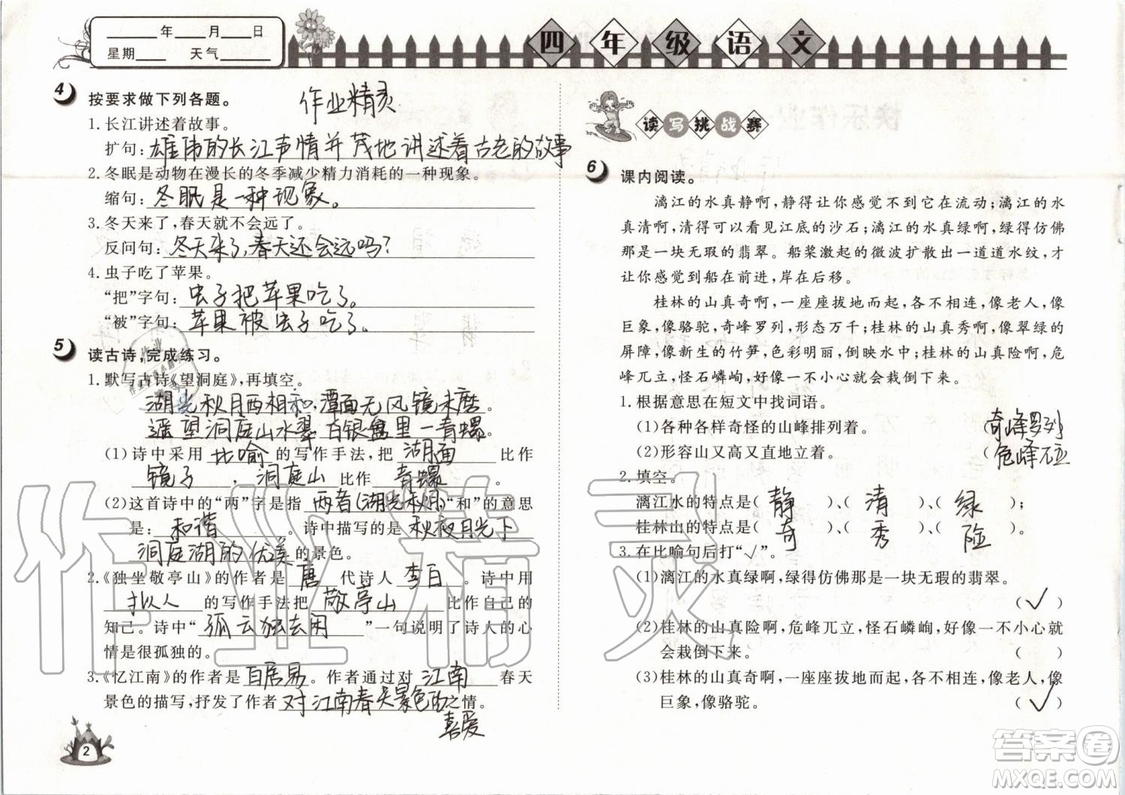 ____年__月__日
星期____ 天气______
四年级语文
4 按要求做下列各题。 作业精灵
1.长江讲述着故事。
扩句:雄伟的长江声情并茂地讲述着古老的故事
2.冬眠是动物在漫长的冬季减少精力消耗的一种现象。
缩句:冬眠是一种现象。
3.冬天来了,春天就不会远了。
反问句:冬天来了,春天还会远吗?
4.虫子吃了苹果。
“把”字句:虫子把苹果吃了。
“被”字句:苹果被虫子吃了。
5 读古诗,完成练习。
1.默写古诗《望洞庭》,再填空。
湖光秋月两相和,潭面无风镜未磨。
遥望洞庭山水翠 白银盘里一青螺
(1)诗中采用 比喻 的写作手法,把 湖面 比作
镜子 ,洞庭山 比作 青螺 。
(2)这首诗中的“两”字是指 两者(湖光秋月) “和”的意思
是: 和谐 诗中描写的是 秋夜月光下
洞庭湖的优美 的景色。
2.《独坐敬亭山》的作者是 唐 代诗人 李白 。诗中
用 拟人 的写作手法把 敬亭山 比作自己的
知己。诗中“ 孤云独去闲 ”一句说明了诗人的心
情是很孤独的。
3.《忆江南》的作者是 白居易 。作者通过对 江南 春天
景色的描写,抒发了作者 对江南春天景色的 之情。
喜爱
2
读写挑战赛
6 课内阅读。
漓江的水真静啊,静得让你感觉不到它在流动;漓江的水
真清啊,清得可以看见江底的沙石;漓江的水真绿啊,绿得仿佛
那是一块无瑕的翡翠。船桨激起的微波扩散出一道道水纹,才
让你感觉到船在前进,岸在后移。
桂林的山真奇啊,一座座拔地而起,各不相连,像老人,像
巨象,像骆驼,奇峰罗列,形态万千;桂林的山真秀啊,像翠绿的
屏障,像新生的竹笋,色彩明丽,倒映水中;桂林的山真险啊,危
峰兀立,怪石嶙峋,好像一不小心就会栽倒下来。
1.根据意思在短文中找词语。
(1)各种各样奇怪的山峰排列着。 奇峰罗列
(2)形容山又高又直地立着。 危峰兀立
2.填空。
漓江水的特点是( 静 )、( 清 )、( 绿 )。
桂林山的特点是( 奇 )、( 秀 )、( 险 )。
3.在比喻句后打“√”。
(1)漓江的水真绿啊,绿得仿佛那是一块无瑕的翡翠。
(√)
(2)桂林的山真险啊,危峰兀立,怪石嶙峋,好像一不小心就
会栽倒下来。 ( )
(3)桂林的山真奇啊,一座座拔地而起,各不相连,像老人,像巨
象,像骆驼。 (√)
作业精灵
答案圈
MXQE.COM